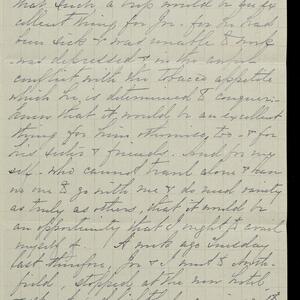 that such a trip would be an ex
cellent thing for Jn. for he had
been sick & was unable to work
was depressed & in the awful
conflict with the tobacco appetite
which he is determined to conquer.
knew that it would be an excellent
thing for him otherwise, too - & for
his sister & friends. And for my
self - who cannot travel alone & have
no one to go with me & do need variety
as truly as others, that it would be
an opportunity that I ought to avail
myself of. A week ago Tuesday
last therefore, Jn & I went to North-
field, stopped at the new hotel